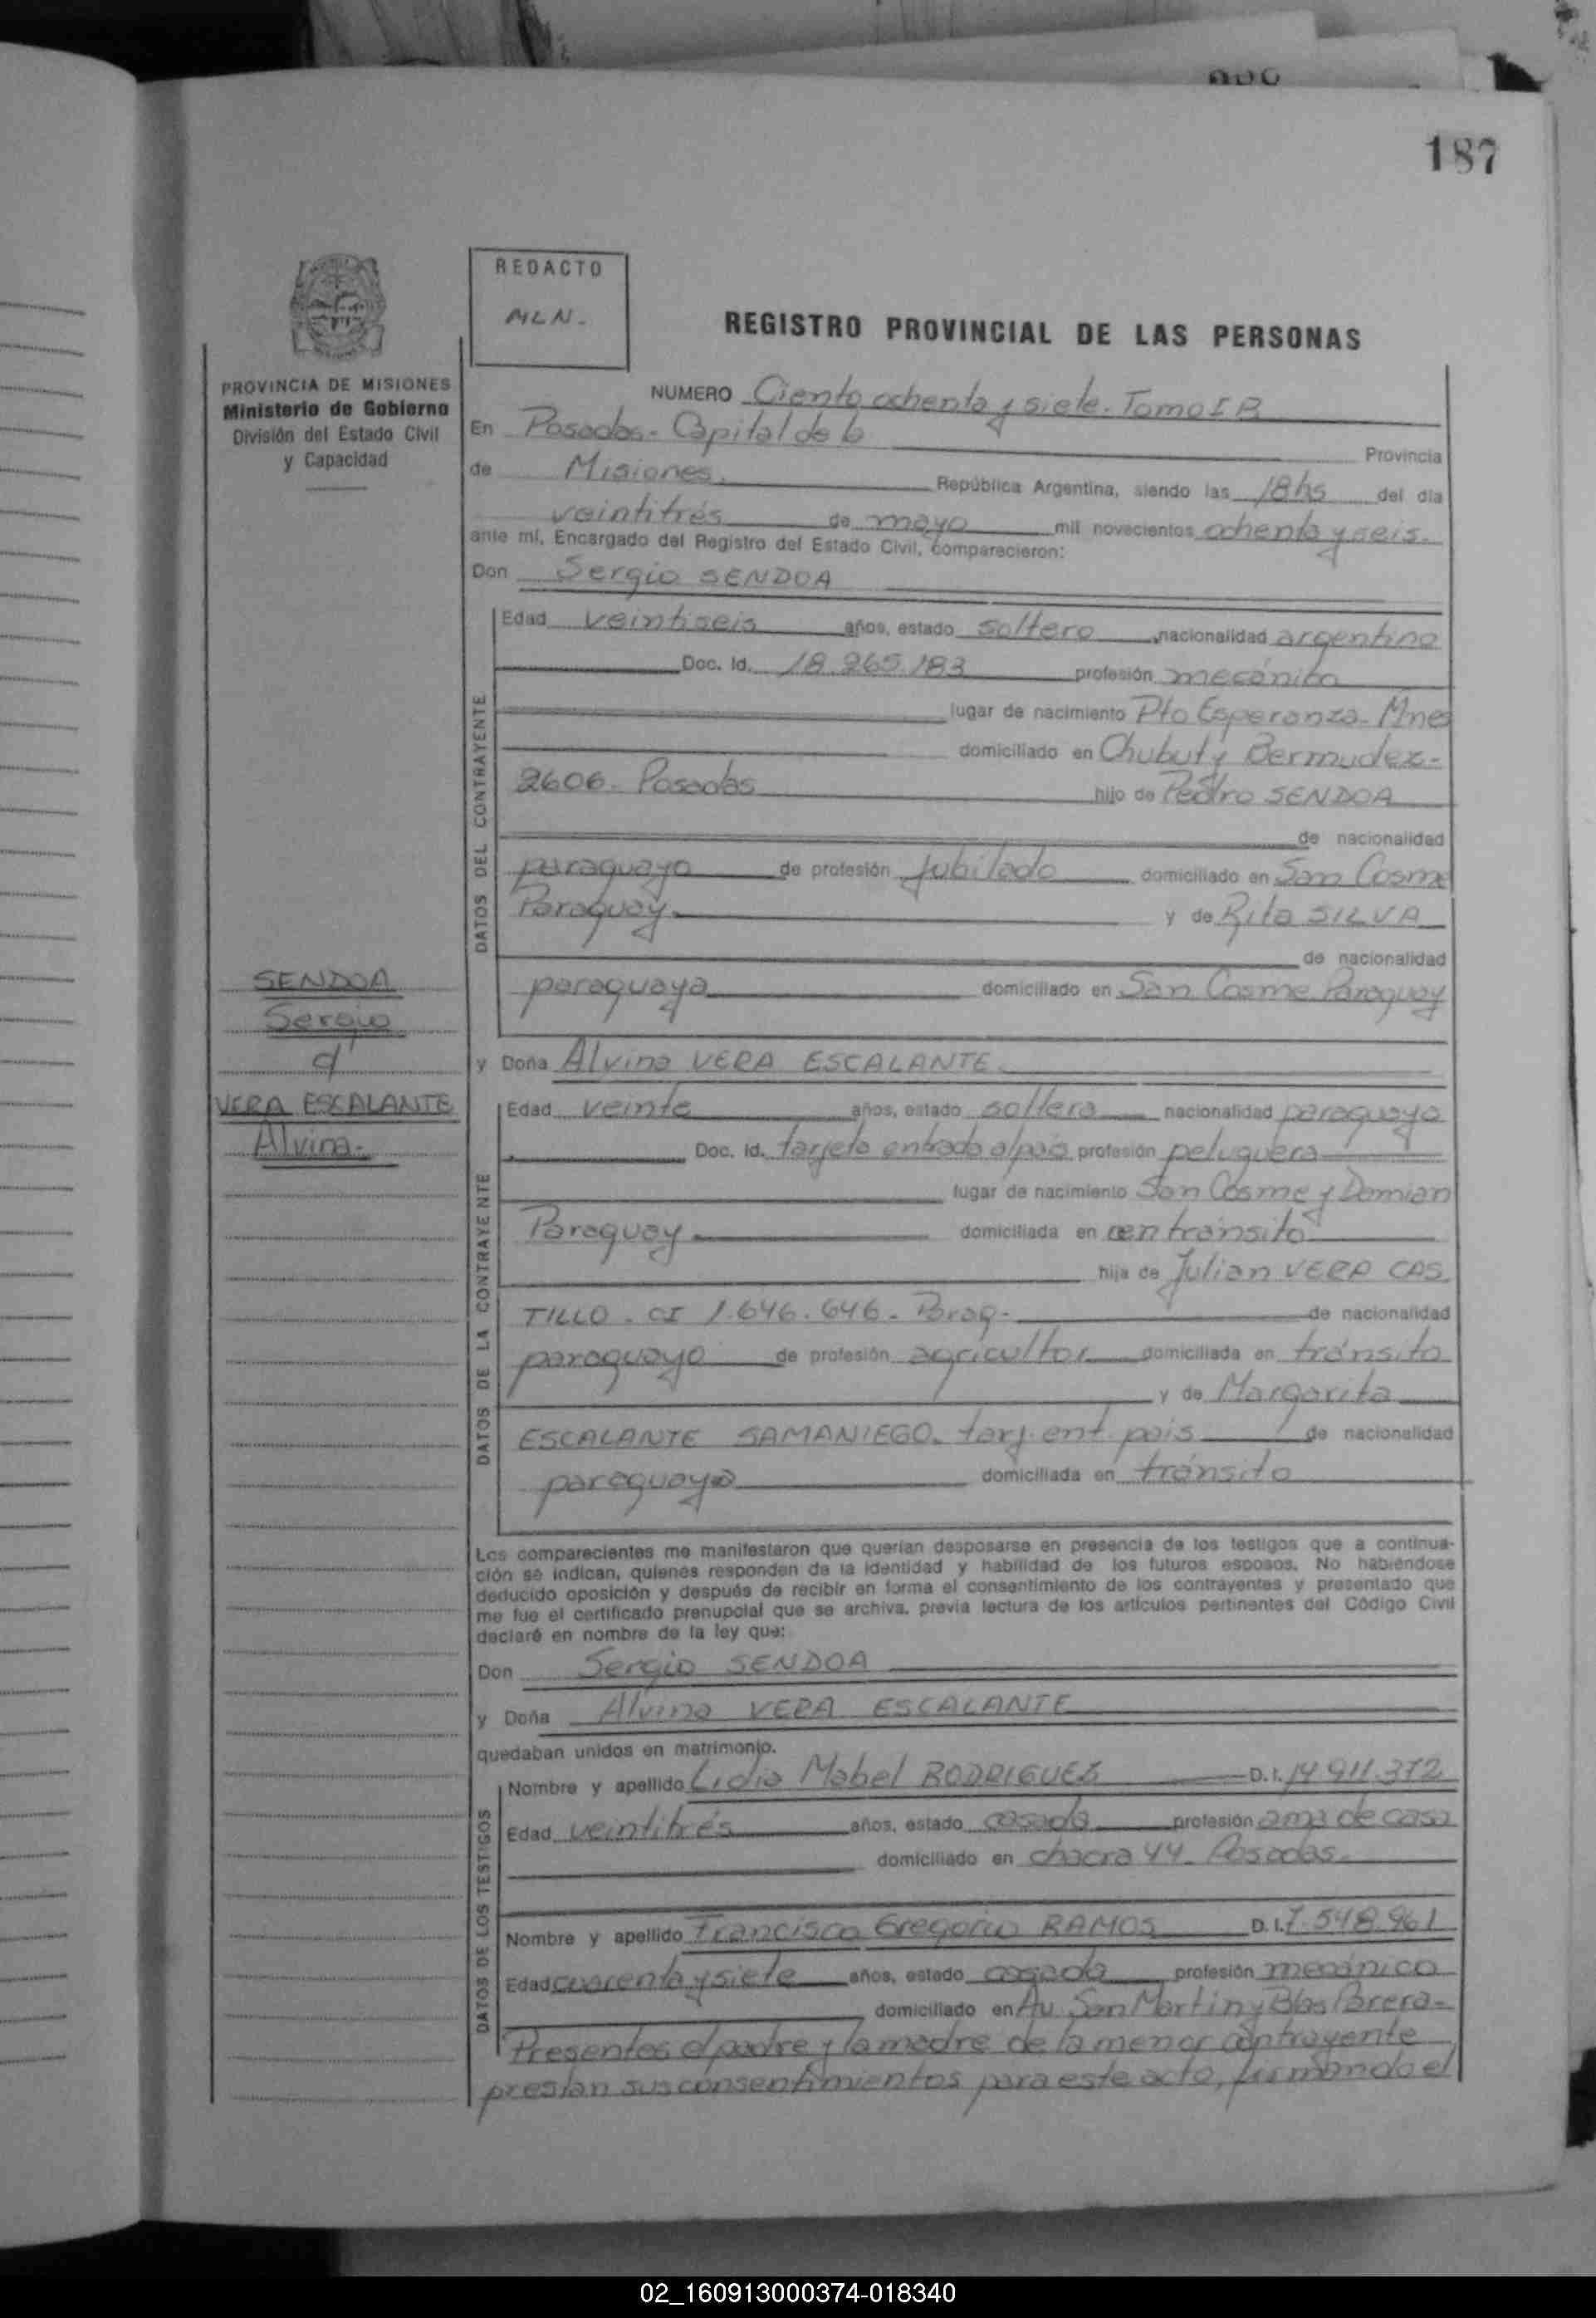 187
REDACTO
MLN.
REGISTRO PROVINCIAL DE LAS PERSONAS
PROVINCIA DE MISIONES
Ministerio de Gobierno
División del Estado Civil
y Capacidad
NUMERO Ciento ochenta y siete. Tomo I B
En Posadas - Capital de la Provincia
de Misiones, República Argentina, siendo las 18 hs del día
veintitrés de mayo mil novecientos ochenta y seis.
ante mí, Encargado del Registro del Estado Civil, comparecieron:
Don Sergio SENDOA
DATOS DEL CONTRAYENTE
Edad veintiseis años, estado soltero nacionalidad argentino
Doc. Id. 18.265.183 profesión mecánico
lugar de nacimiento Pto Esperanza - Mnes
domiciliado en Chubut y Bermudez -
2606 - Posadas hijo de Pedro SENDOA
de nacionalidad
paraguayo de profesión jubilado domiciliado en San Cosme
Paraguay. y de Rita SILVA
de nacionalidad
paraguaya domiciliado en San Cosme Paraguay
SENDOA
Sergio
c/
VERA ESCALANTE
Alvina -
y Doña Alvina VERA ESCALANTE
DATOS DE LA CONTRAYENTE
Edad veinte años, estado soltera nacionalidad paraguaya
Doc. Id. tarjeta entrada al país profesión peluquera
lugar de nacimiento San Cosme y Damian
Paraguay domiciliada en en tránsito
hija de Julian VERA CAS
TILLO - CI 1.646.646 - Parag -
de nacionalidad
paraguayo de profesión agricultor domiciliada en tránsito
y de Margarita
ESCALANTE SAMANIEGO. tarj. ent. país de nacionalidad
paraguaya domiciliada en tránsito
Los comparecientes me manifestaron que querían desposarse en presencia de los testigos que a continua-
ción se indican, quienes responden de la identidad y habilidad de los futuros esposos. No habiéndose
deducido oposición y después de recibir en forma el consentimiento de los contrayentes y presentado que
me fue el certificado prenupcial que se archiva, previa lectura de los artículos pertinentes del Código Civil
declaré en nombre de la ley que:
Don Sergio SENDOA
y Doña Alvina VERA ESCALANTE
quedaban unidos en matrimonio.
DATOS DE LOS TESTIGOS
Nombre y apellido Lidia Mabel RODRIGUEZ D.I. 14.911.372
Edad veintitrés años, estado casada profesión ama de casa
domiciliado en chacra 44 - Posadas.
Nombre y apellido Francisco Gregorio RAMOS D.I. 7.548.961
Edad cuarenta y siete años, estado casado profesión mecánico
domiciliado en Av San Martin y Blas Parera -
Presentes el padre y la madre de la menor contrayente
prestan sus consentimientos para este acto, firmando el
02_160913000374-018340